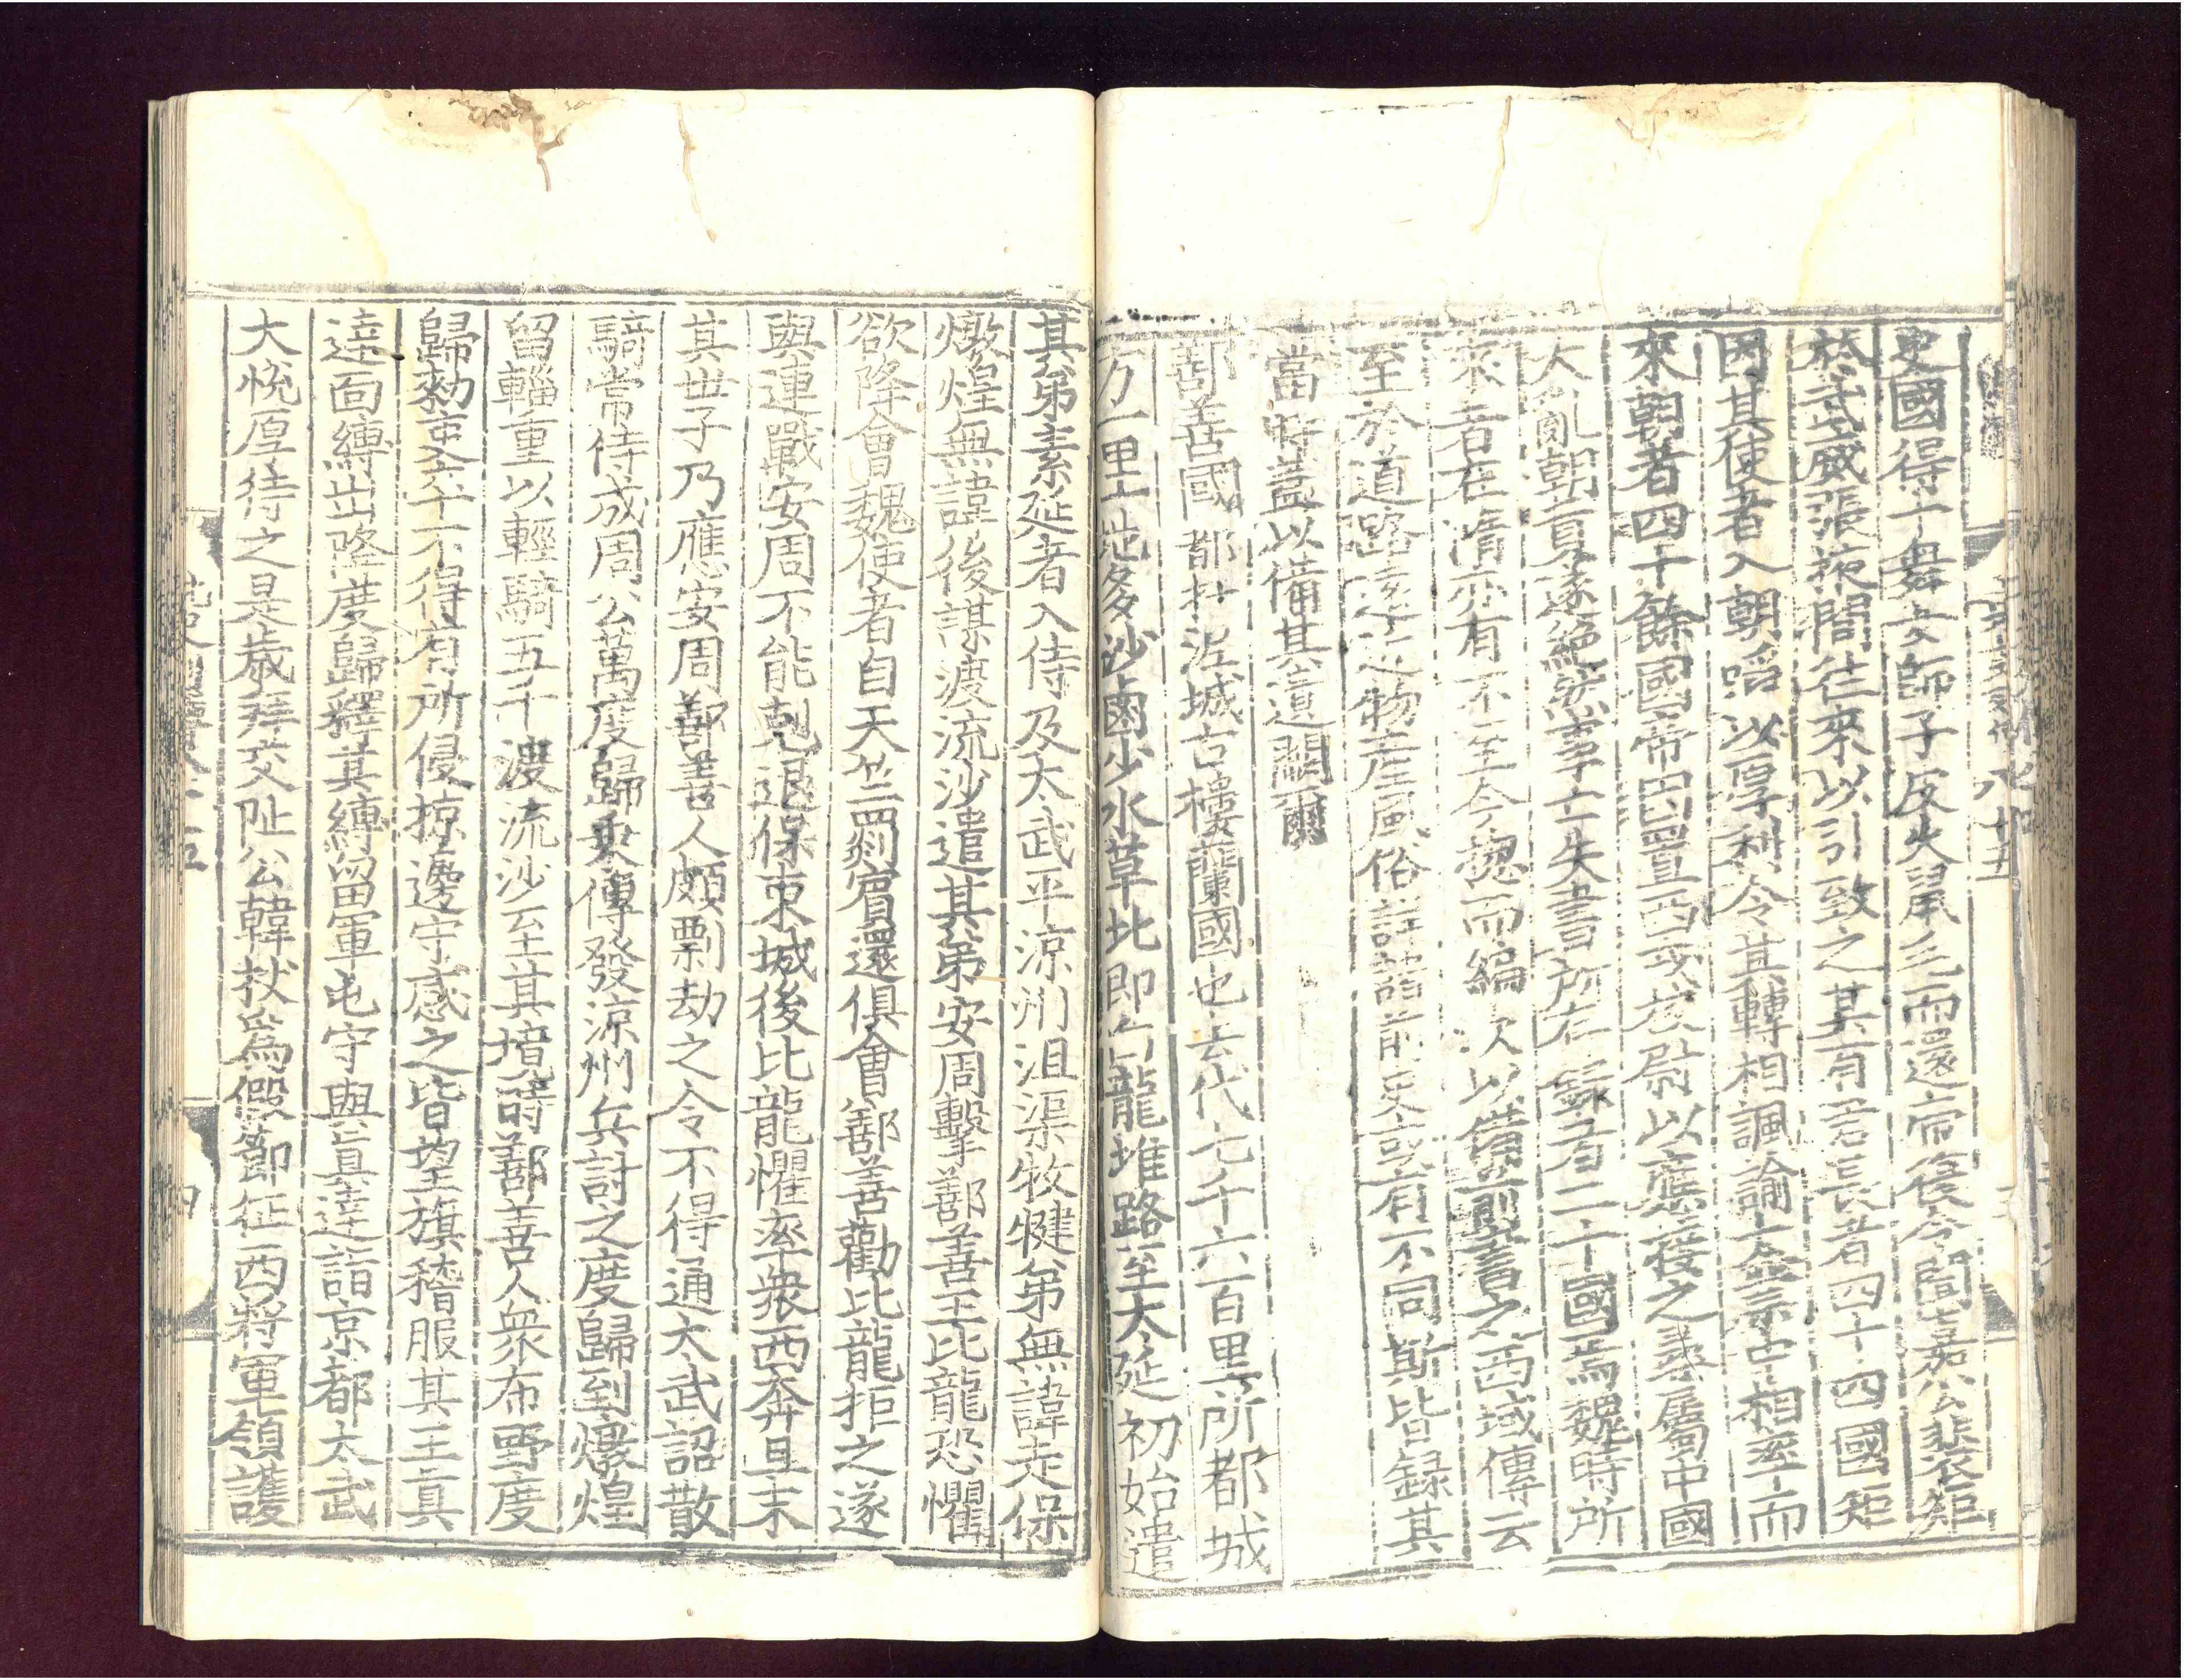 史國得十舞女師子皮火鼠毛而還帝復令聞喜公裴矩
於武威張掖間往來以引致之其有君長者四十四國矩
因其使者入朝啗以厚利令其轉相諷諭大業中相率而
來朝者四十餘國帝因置西戎校尉以應接之尋屬中國
大亂朝貢遂絶然事亡失書所存錄者二十國焉魏時所
來者在隋亦有不至今總而編次以備前書之西域傳云
至於道路遠近物産風俗詳諸前史或有不同斯皆録其
當時盖以備其遺闕爾
鄯善國都扜泥城古樓蘭國也去代七千六百里所都城
方一里地多沙鹵少水草北即白龍堆路至太延初始遣
其弟素延耆入侍及太武平涼州沮渠牧犍弟無諱走保
燉煌無諱後謀渡流沙遣其弟安周擊鄯善王比龍恐懼
欲降會魏使者自天竺罽賔還俱會鄯善勸比龍拒之遂
與連戰安周不能剋退保東城後比龍懼率衆西奔且末
其世子乃應安周鄯善人頗剽劫之令不得通太武詔散
騎常侍成周公萬度歸乘傳發涼州兵討之度歸到燉煌
留輜重以輕騎五千渡流沙至其境時鄯善人衆布野度
歸勑吏卒不得有所侵掠邊守感之皆望旗稽服其王真
達面縳出降度歸釋其縳留軍屯守與真達詣京都太武
大悅厚待之是歲拜交阯公韓拔爲假節征西將軍領護